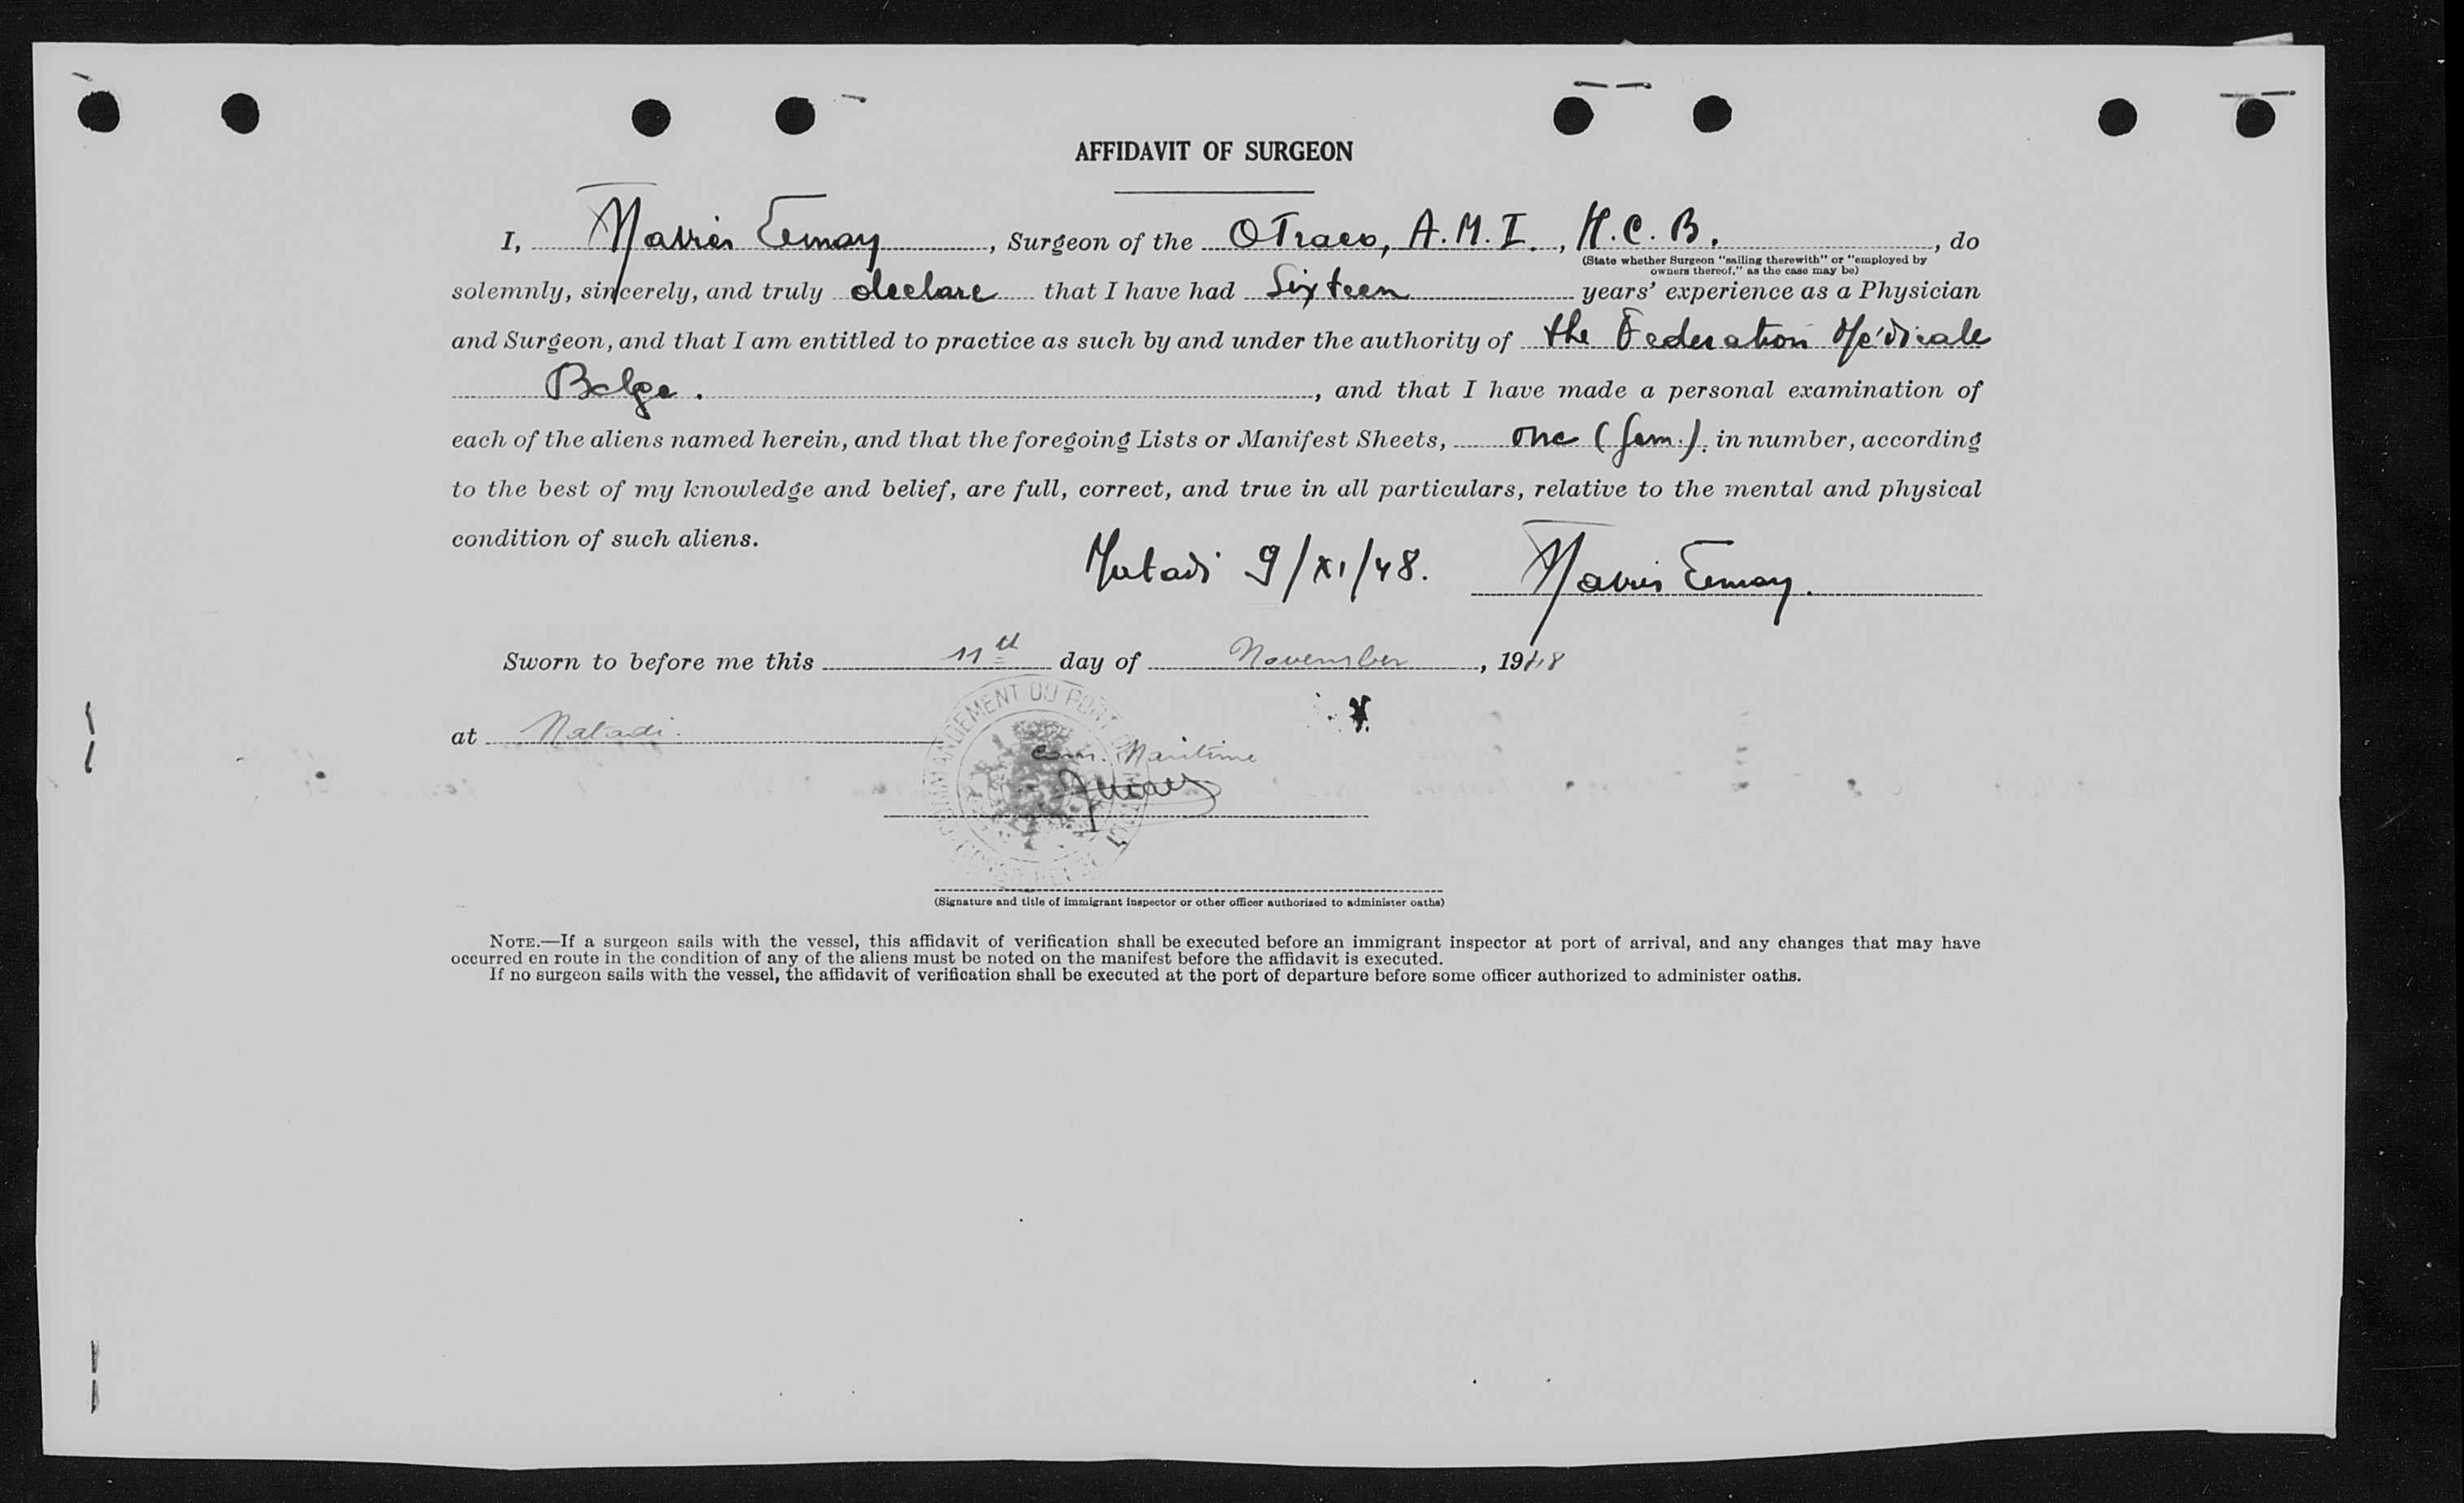 AFFIDAVIT OF SURGEON
I, , Surgeon of the OTraco, A.M.I., H.C.B., do
(State whether Surgeon "sailing therewith" or "employed by
owners thereof," as the case may be)
solemnly, sincerely, and truly declare that I have had Sixteen years' experience as a Physician
and Surgeon, and that I am entitled to practice as such by and under the authority of the Federation Médicale
Belge. , and that I have made a personal examination of
each of the aliens named herein, and that the foregoing Lists or Manifest Sheets, one (fem.). in number, according
to the best of my knowledge and belief, are full, correct, and true in all particulars, relative to the mental and physical
condition of such aliens.
Matadi 9/XI/48.
Sworn to before me this 11th day of November, 1948
at Matadi.
COMMANDEMENT DU PORT
Com. Maritime
(Signature and title of immigrant inspector or other officer authorized to administer oaths)
NOTE.—If a surgeon sails with the vessel, this affidavit of verification shall be executed before an immigrant inspector at port of arrival, and any changes that may have
occurred en route in the condition of any of the aliens must be noted on the manifest before the affidavit is executed.
If no surgeon sails with the vessel, the affidavit of verification shall be executed at the port of departure before some officer authorized to administer oaths.